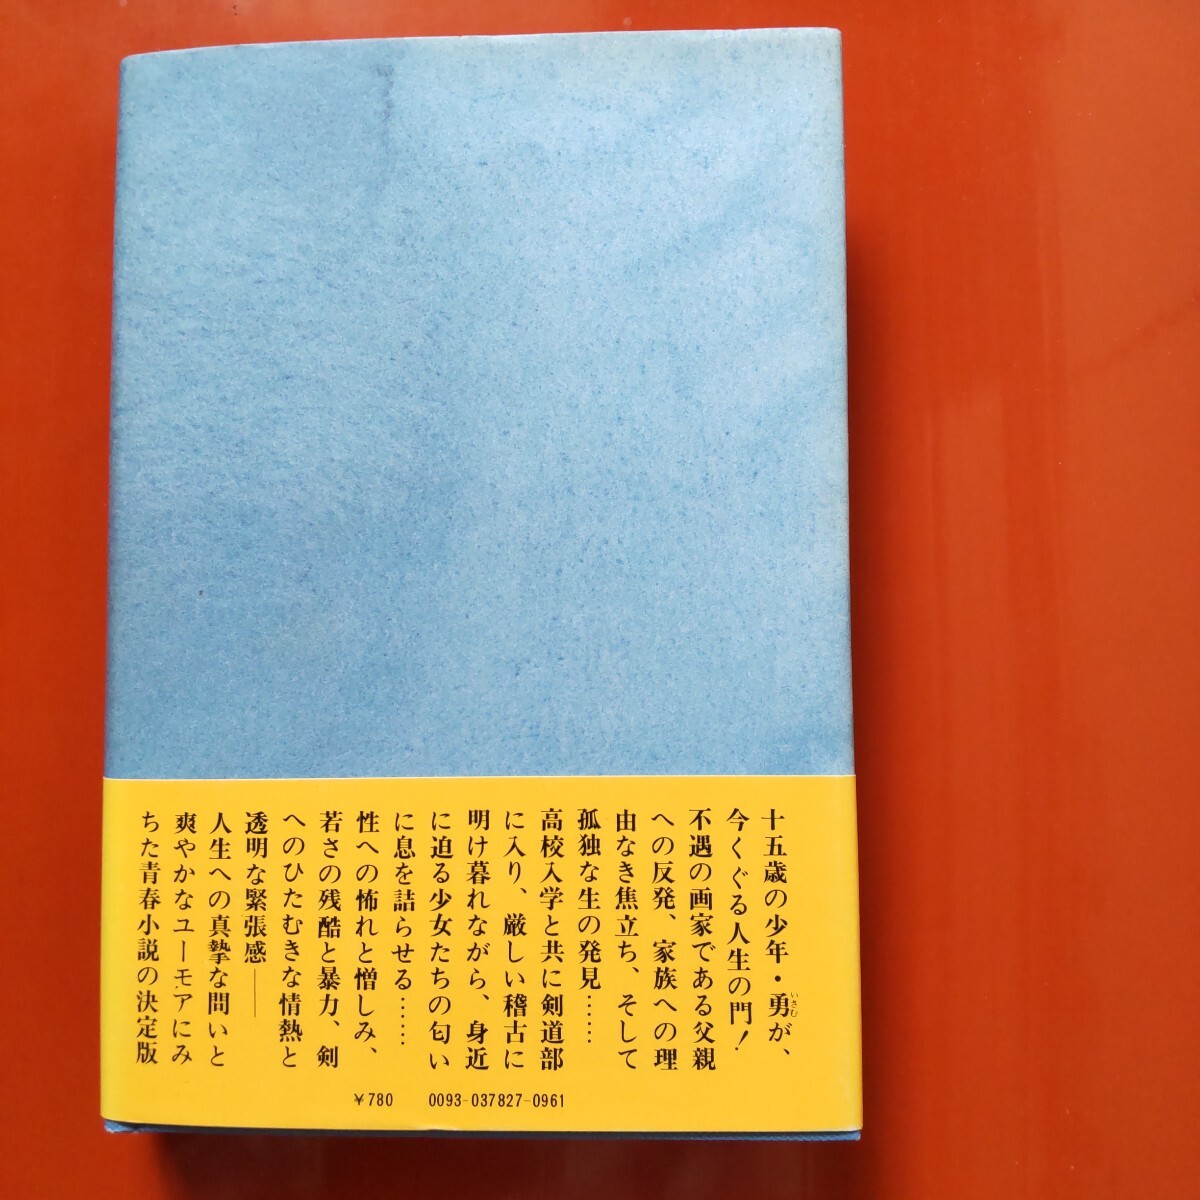 十五歳の少年・勇が、
いさむ
今くぐる人生の門！
不遇の画家である父親
への反発、家族への理
由なき焦立ち、そして
孤独な生の発見……
高校入学と共に剣道部
に入り、厳しい稽古に
明け暮れながら、身近
に迫る少女たちの匂い
に息を詰らせる……
性への怖れと憎しみ、
若さの残酷と暴力、剣
へのひたむきな情熱と
透明な緊張感——
人生への真摯な問いと
爽やかなユーモアにみ
ちた青春小説の決定版
￥780　0093-037827-0961